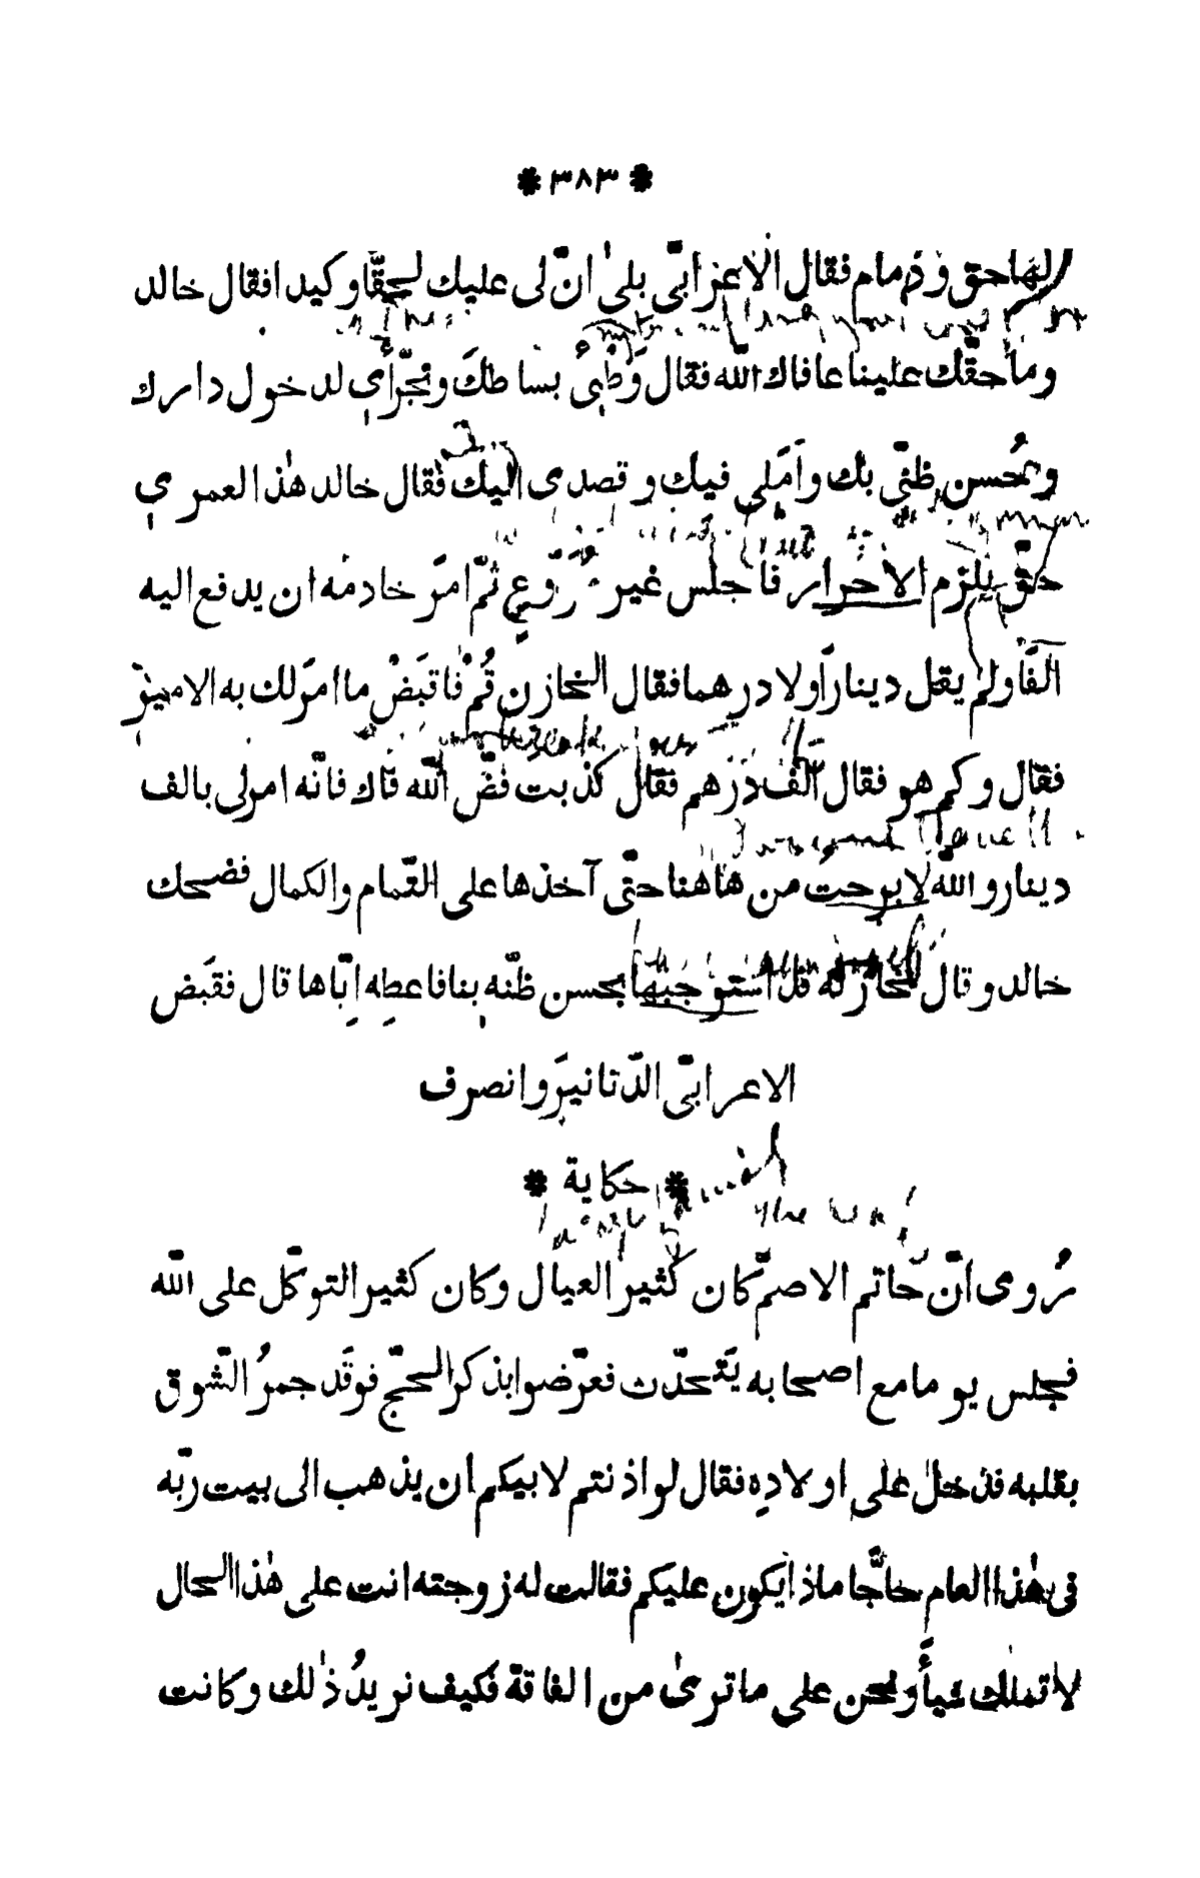 * ٣٨٣ *
لها حق وذمام فقال الاعرابىّ بلىٰ انّ لى عليك لحقّا وكيدا فقال خالد
وما حقّك علينا عافاك اللّه فقال وَطْيىُ بساطكَ وتجرّأى لدخول دارك
وحُسن ظنّى بك واَمَلى فيك وقصدى اليك فقال خالد هٰذا لعمرى
حقّ يلزم الاحرار فاجلس غير مُرَوَّعٍ ثمّ امَر خادمه ان يدفع اليه
الفًا ولم يقل دينارًا ولا درهما فقال الخازن قُمْ فاقبَضْ ما امَر لك به الامير
فقال وكم هو فقال اَلْف دِرْهم فقال كذبت فضّ اللّه فاك فانّه امر لى بالف
دينار واللّه لا برحتُ من هاهنا حتّى آخذها على التّمام والكمال فضحك
خالد وقال للخازن له قد استوجبها بحسن ظنّه بنا فاعطِه اِيّاها قال فقَبض
الاعرابىّ الدّنانيرَ وانصرف
* حكاية *
رُوى انّ حاتم الاصمّ كان كثير العيال وكان كثير التوكّل على اللّه
فجلس يوما مع اصحابه يَتحدّث فعرّضوا بذكر الحجّ فوقَد جمرُ الشّوق
بقلبه فدخل على اولادِه فقال لو اذنتم لابيكم ان يذهب الى بيت ربّه
فى هٰذا العام حاجًّا ماذا يكون عليكم فقالت له زوجته انت على هٰذا الحال
لا تملك شيأً ونحن على ما ترىٰ من الفاقة فكيف نريدُ ذٰلك وكانت